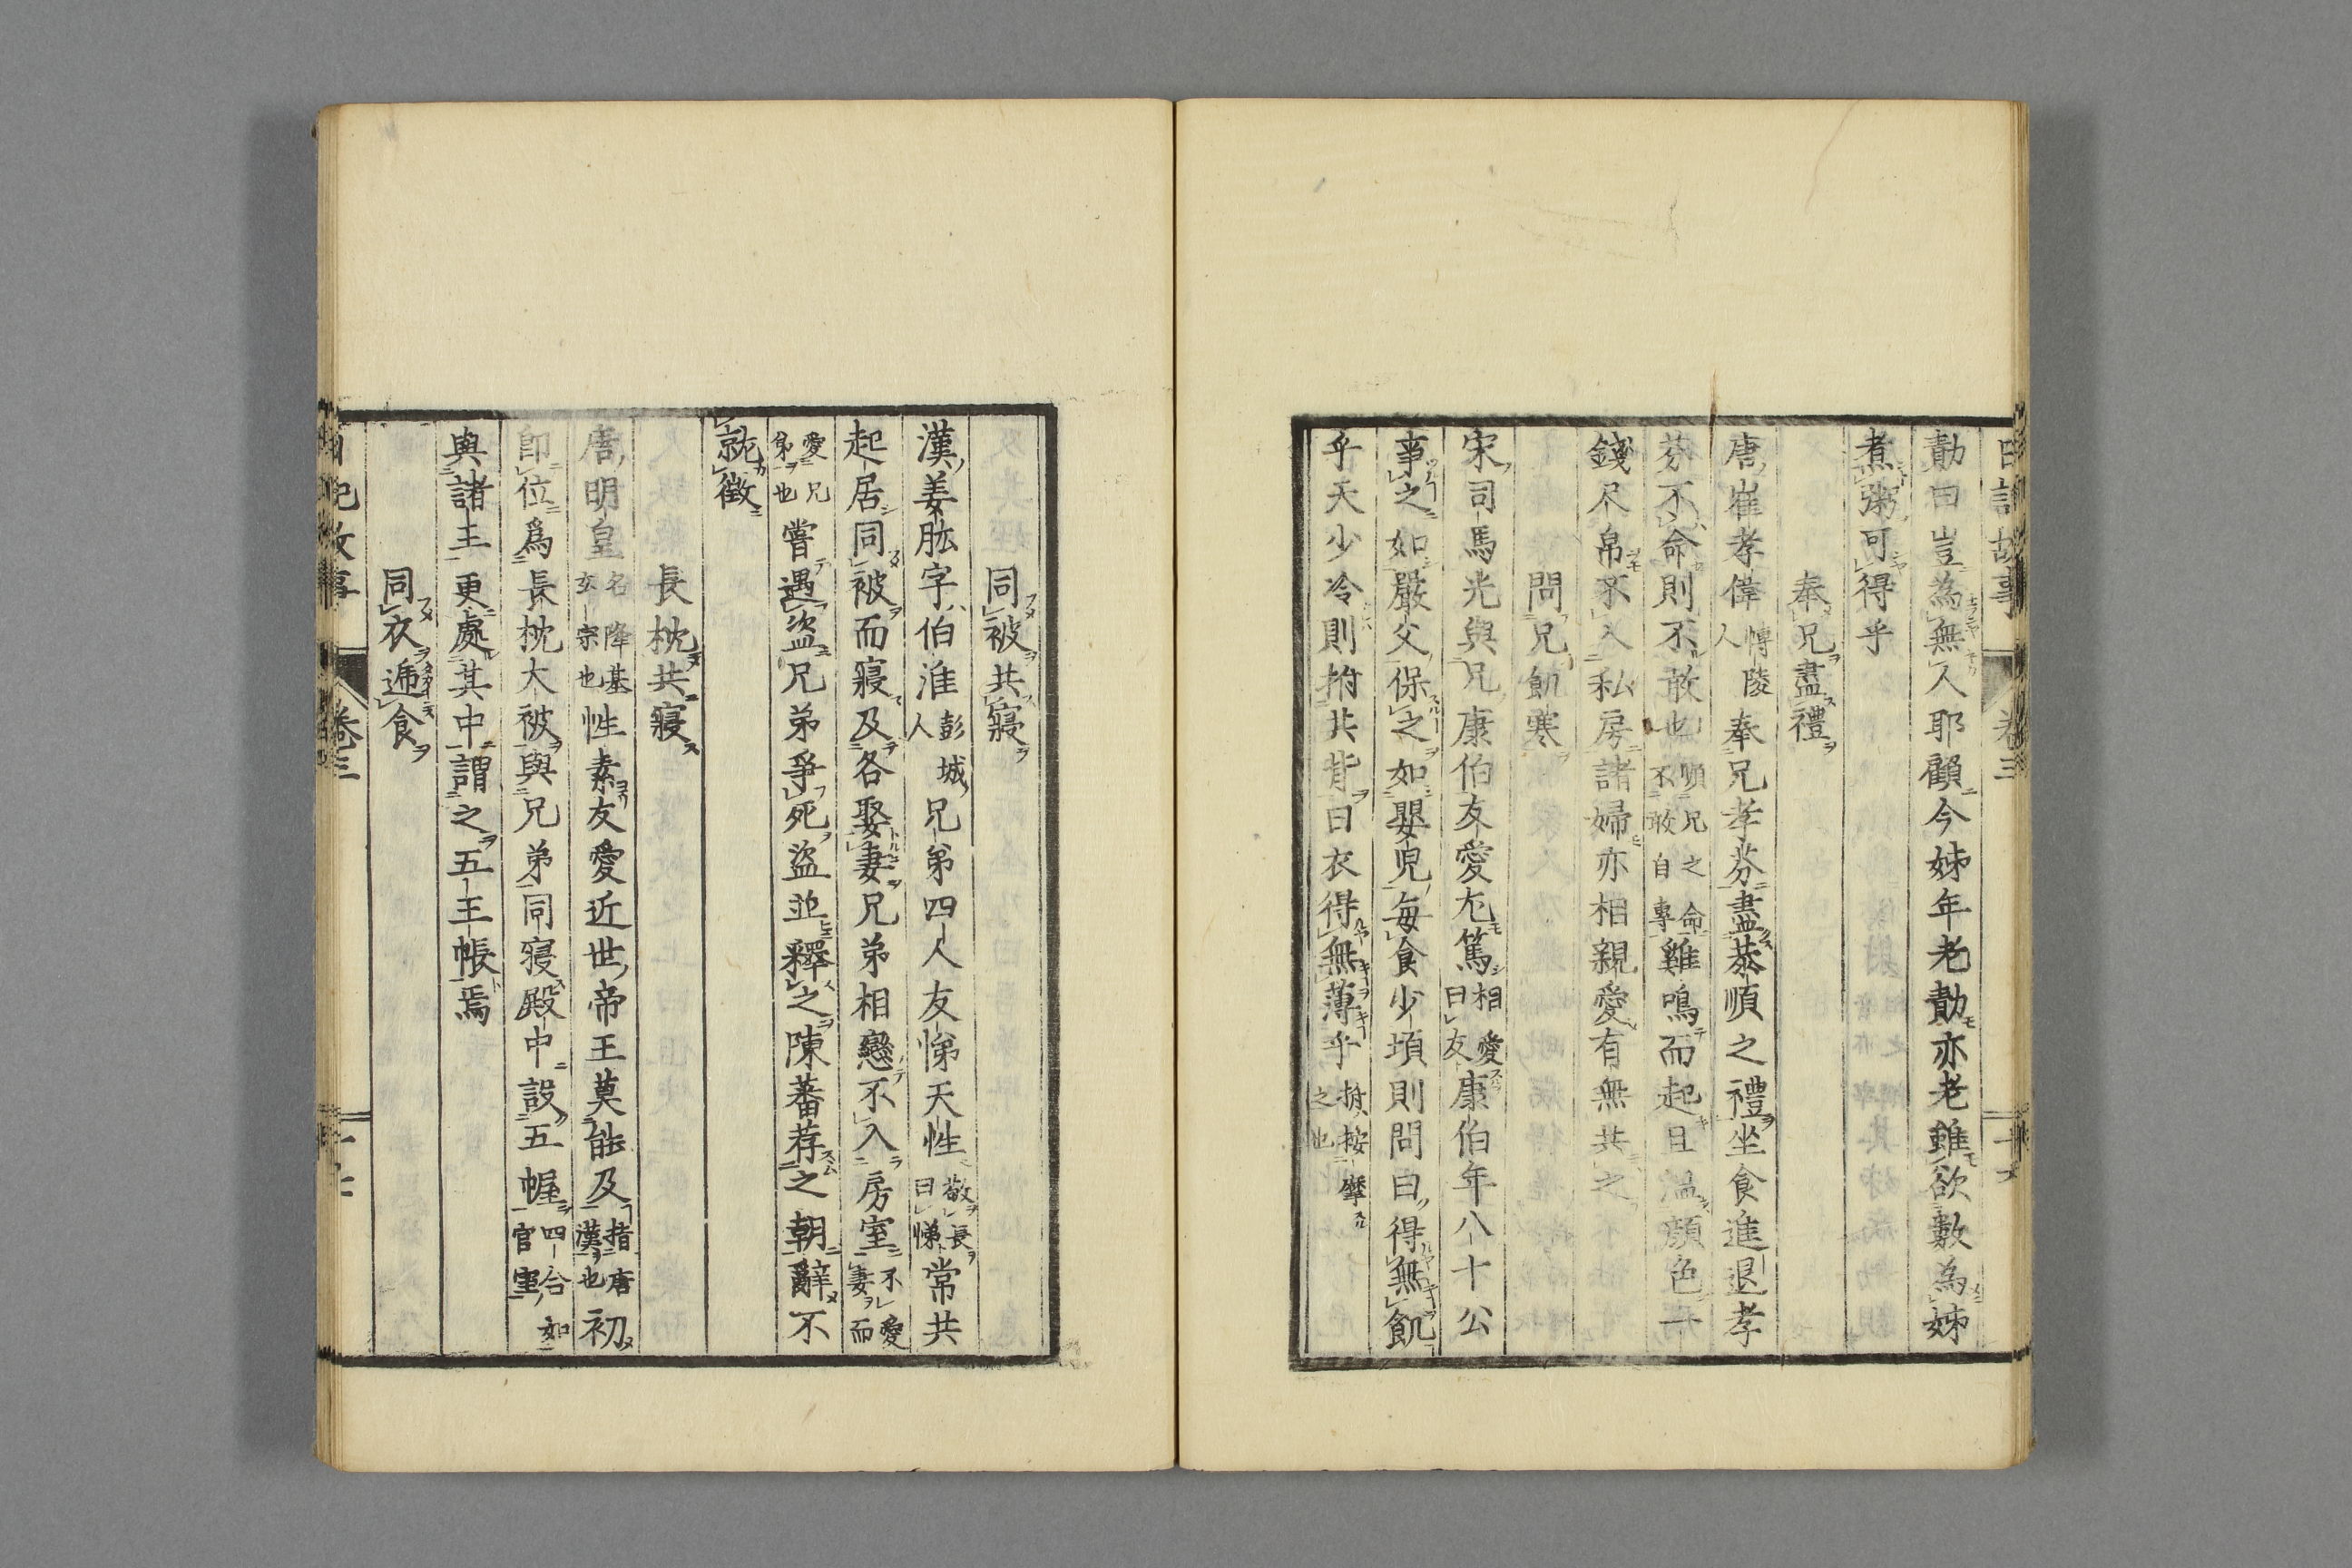 日記故事 卷三
勣曰豈為無人耶顧今姊年老勣亦老雖欲數為姊
煮粥可得乎
奉兄盡禮
唐崔孝偉博陵人奉兄孝芬盡恭順之禮坐食進退孝
芬不命則不敢也順兄之命不敢自專雞鳴而起且溫顏色一
錢尺帛不入私房諸婦亦相親愛有無共之
問兄飢寒
宋司馬光與兄康伯友愛尤篤相愛曰友康伯年八十公
事之如嚴父保之如嬰児每食少頃則問曰得無飢
乎天少冷則拊共背曰衣得無薄乎拊按摩之也
同被共寢
漢姜肱字伯淮彭城人兄弟四人友悌天性敬長曰悌常共
起居同被而寢及各娶妻兄弟相戀不入房室不愛妻而
愛兄弟也嘗遇盜兄弟爭死盜並釋之陳蕃荐之朝辭不
就徵
長枕共寢
唐明皇名隆基玄宗也性素友愛近世帝王莫能及指唐漢也初
即位爲長枕大被與兄弟同寢殿中設五幄四合如宮室
與諸王更處其中謂之五王帳焉
同衣遞食
日記故事 卷三